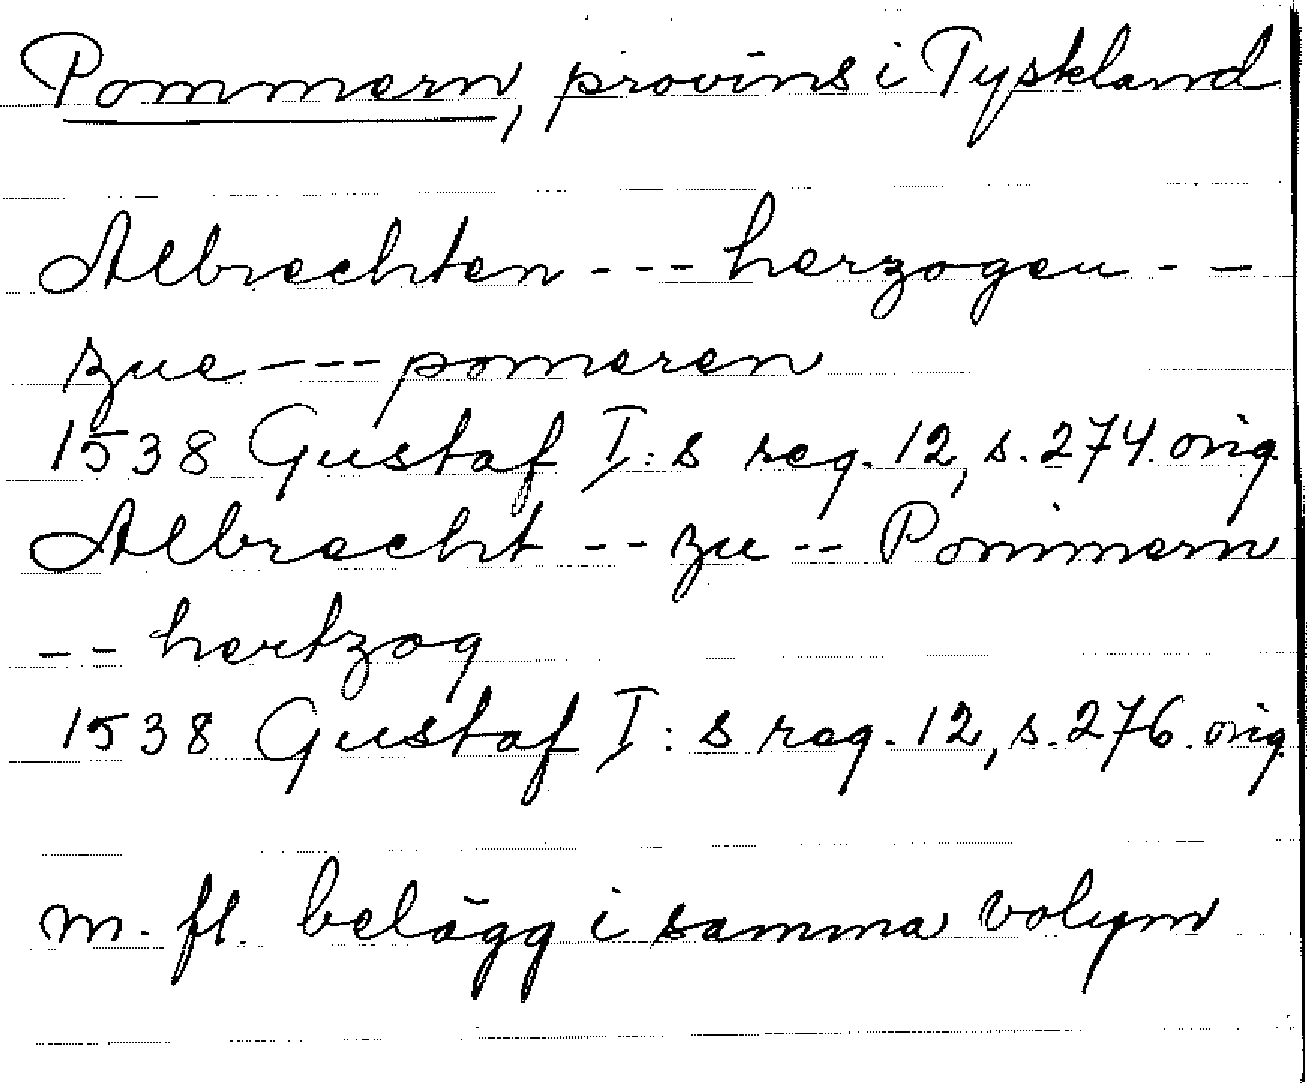 Pommern, provins i Tyskland
Albrechten - - - herzogen - -
zue - - - pomeren
1538 Gustaf I:s reg. 12, s. 274. orig
Albrecht - - zu - - Pommern
- - hertzog
1538 Gustaf I:s reg. 12, s. 276. orig.
m. fl. belägg i samma volym